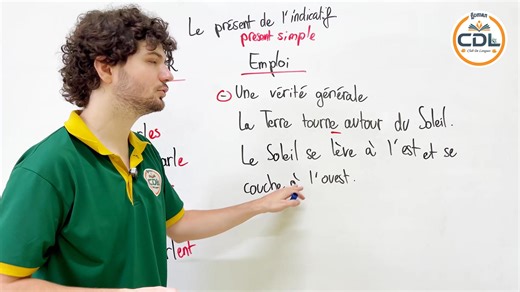 Le présent de l'indicatif
présent simple
Emploi
Une vérité générale
La Terre tourne autour du Soleil.
Le Soleil se lève à l'est et se
couche à l'ouest.
les
arle
lent
CDL
CDL